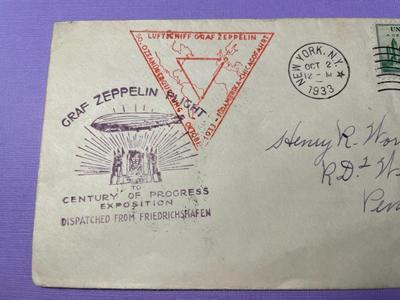 LUFTSCHIFF GRAF ZEPPELIN
SÜDAMERIKA-CHICAGOFAHRT
1933
NEW YORK, N.Y.
OCT 2
12 - M
1933
UN
GRAF ZEPPELIN FLIGHT
TO
CENTURY OF PROGRESS
EXPOSITION
DISPATCHED FROM FRIEDRICHSHAFEN
Henry R. Wor
R.D. 2 W
Pen